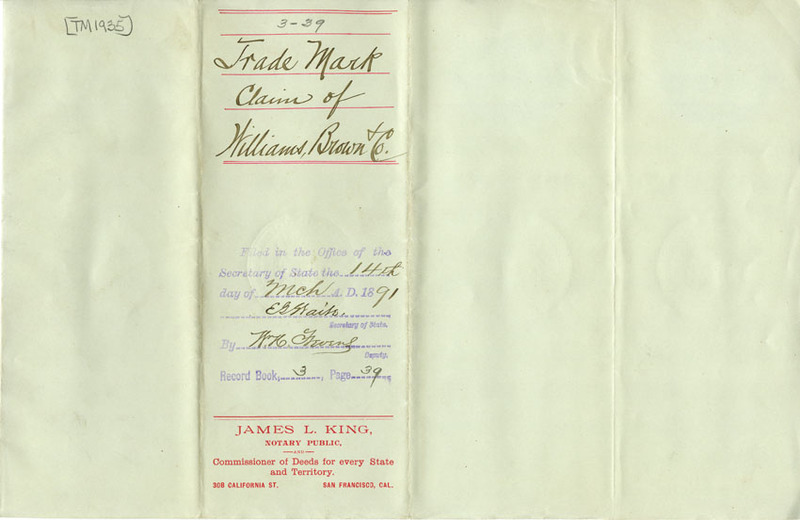 [TM1935]
3-39
Trade Mark
Claim of
Williams, Brown & Co.
Filed in the Office of the
Secretary of State the 14th
day of Mch A. D. 1891
E G Waite
Secretary of State.
By W. H.
Deputy.
Record Book, 3, Page 39
JAMES L. KING,
NOTARY PUBLIC,
—AND—
Commissioner of Deeds for every State
and Territory.
308 CALIFORNIA ST. SAN FRANCISCO, CAL.